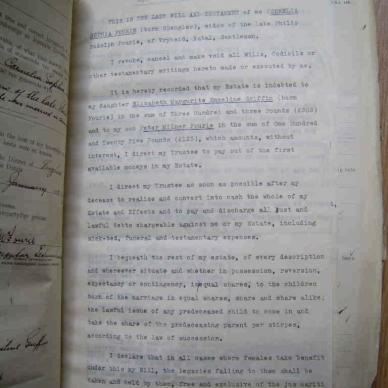 THIS IS THE LAST WILL AND TESTAMENT of me CORNELIA
SOPHIA FOURIE (born Spangler), widow of the late Philip
Rudolph Fourie, of Vryheid, Natal, Gentleman.
I revoke, cancel and make void all Wills, Codicils or
other testamentary writings hereto made or executed by me.
It is hereby recorded that my Estate is indebted to
my daughter Elizabeth Margurite Emmeline Griffin (born
Fourie) in the sum of Three Hundred and three Pounds (£303)
and to my son Peter Milner Fourie in the sum of One Hundred
and Twenty Five Pounds (£125), which amounts, without
interest, I direct my Trustee to pay out of the first
available moneys in my Estate.
I direct my Trustee as soon as possible after my
decease to realize and convert into cash the whole of my
Estate and Effects and to pay and discharge all just and
lawful debts chargeable against me or my Estate, including
sick-bed, funeral and testamentary expenses.
I bequeath the rest of my estate, of every description
and wheresoever situate and whether in possession, reversion,
expectancy or contingency, in equal shares, to the children
born of the marriage in equal shares, share and share alike;
the lawful issue of any predeceased child to come in and
take the share of the predeceasing parent per stirpes,
according to the law of succession.
I declare that in all cases where females take benefit
under this my Will, the legacies falling to them shall be
taken and held by them, free and exclusive of the jus mariti